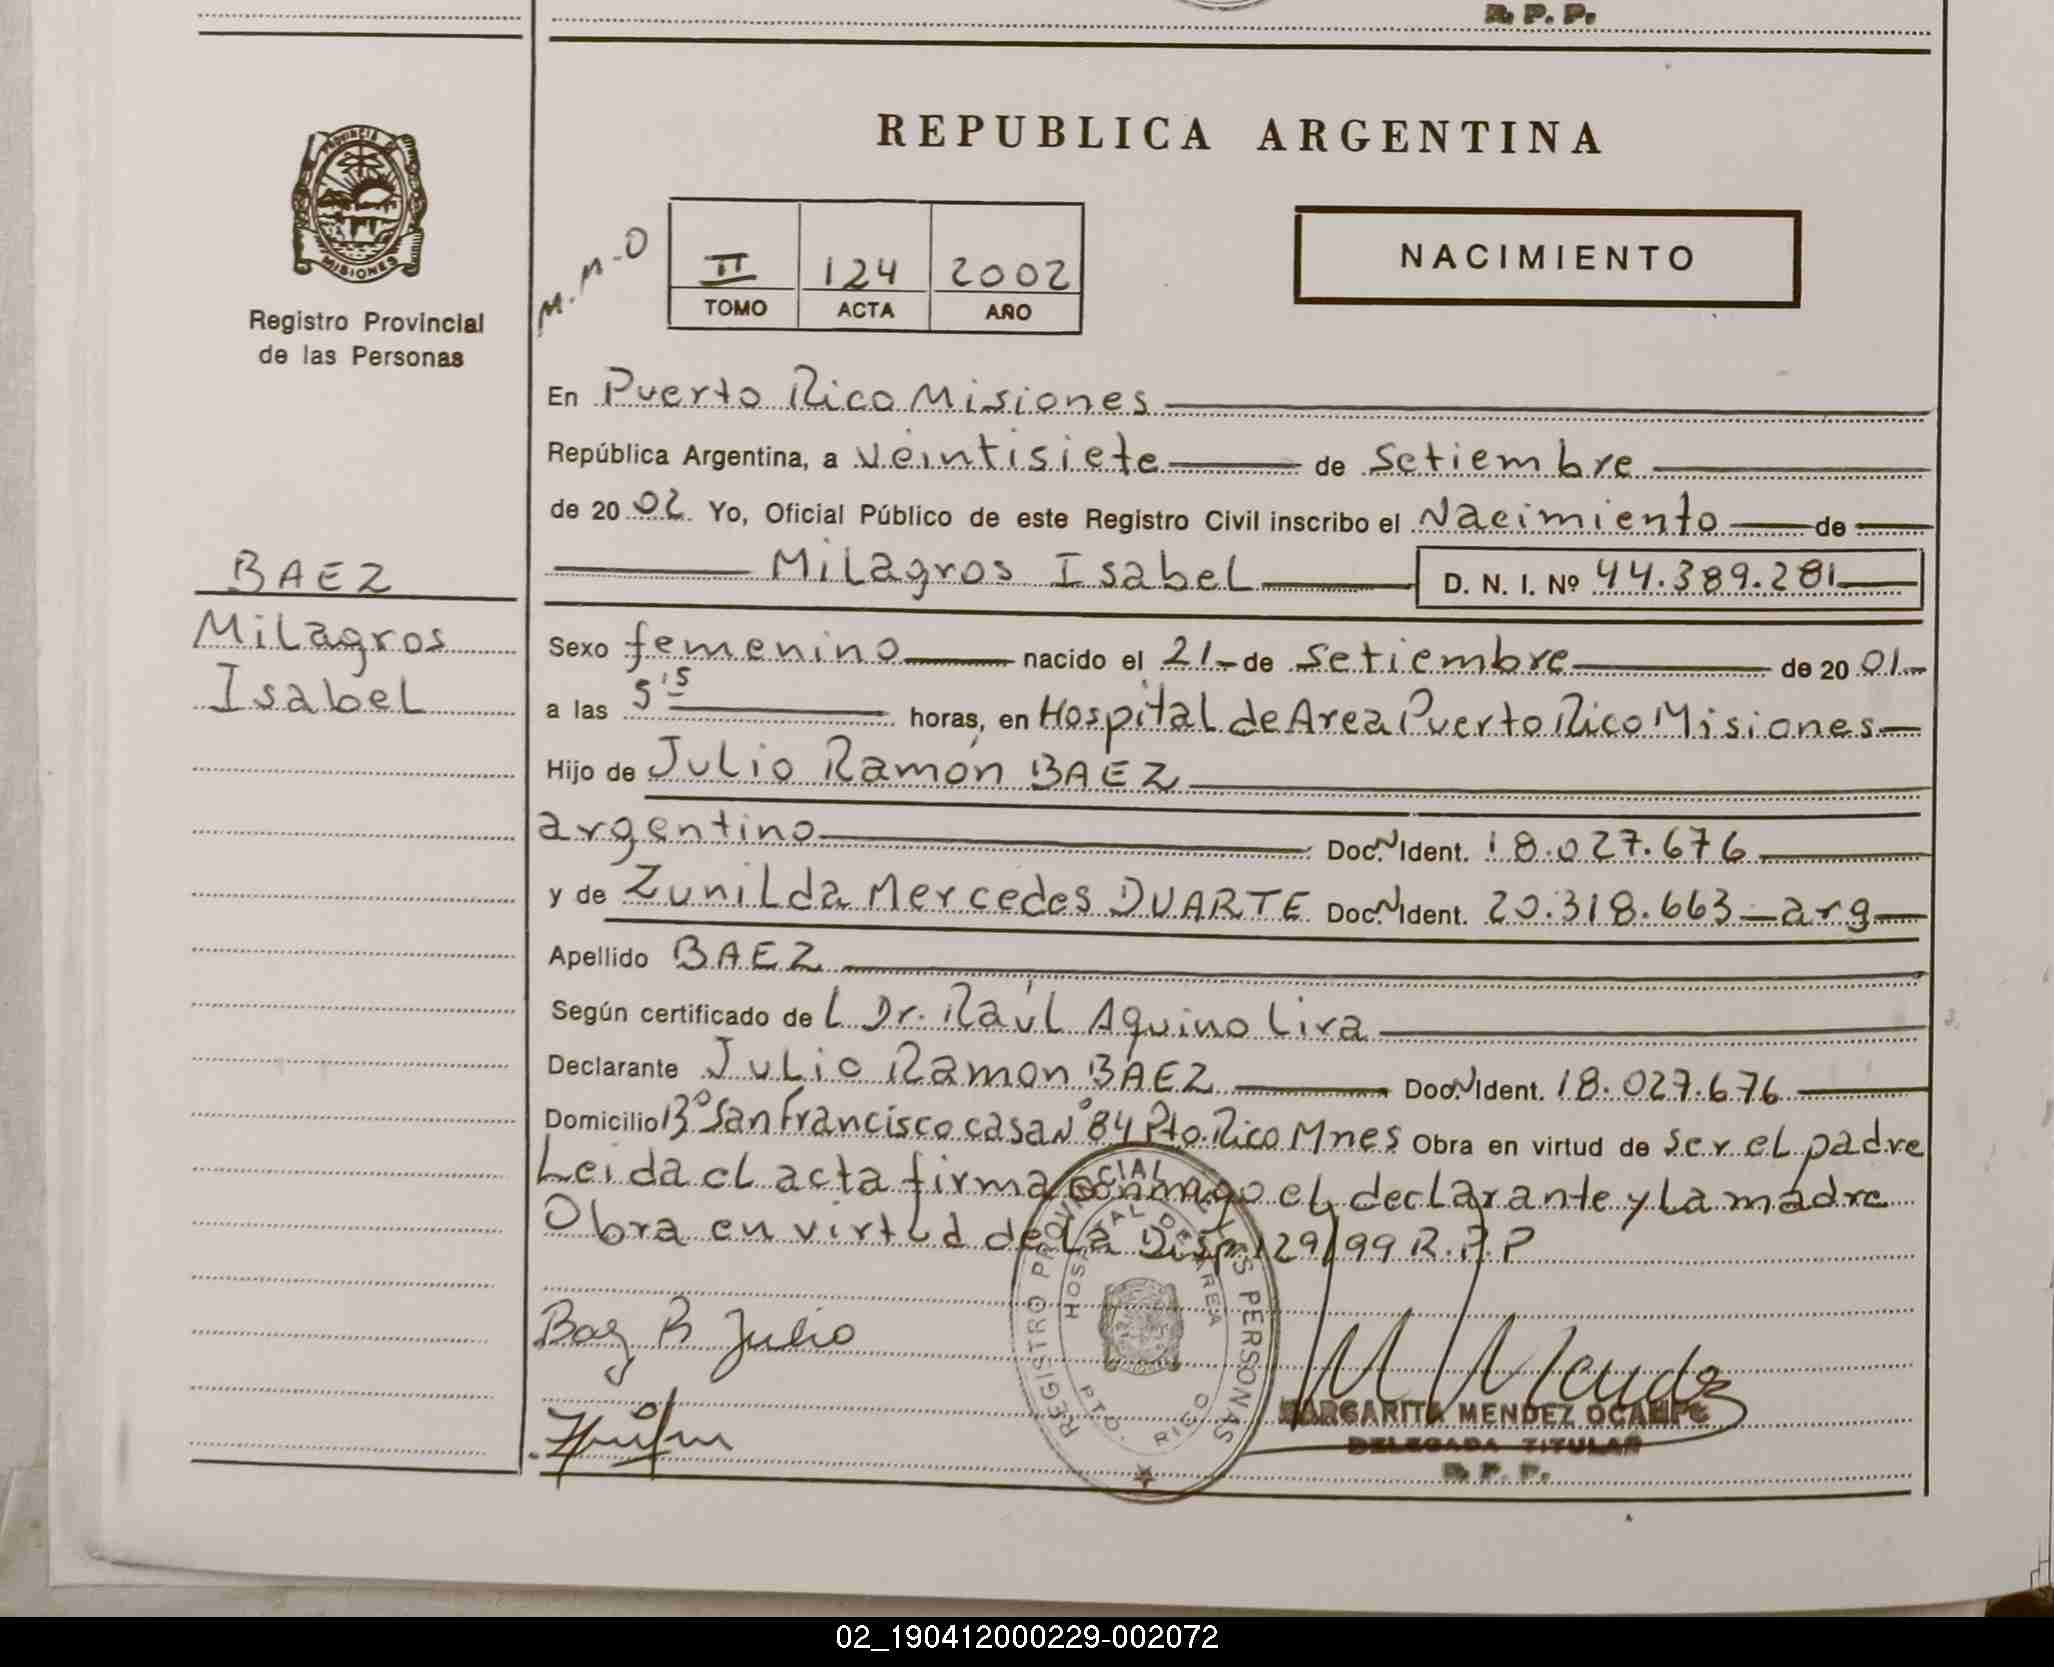 R. P. P.
PROVINCIA DE
MISIONES
Registro Provincial
de las Personas
REPUBLICA ARGENTINA
M.M.O
II 124 2002
TOMO ACTA AÑO
NACIMIENTO
En Puerto Rico Misiones
República Argentina, a veintisiete de setiembre
de 20 02 Yo, Oficial Público de este Registro Civil inscribo el Nacimiento de
BAEZ
Milagros
Isabel
Milagros Isabel D. N. I. Nº 44.389.281
Sexo femenino nacido el 21 de setiembre de 20 01
a las 5'15 horas, en Hospital de Area Puerto Rico Misiones
Hijo de Julio Ramón BAEZ
argentino Doc. N Ident. 18.027.676
y de Zunilda Mercedes DUARTE Doc. N Ident. 20.318.663 arg
Apellido BAEZ
Según certificado de L Dr. Raúl Aquino Lira
Declarante Julio Ramon BAEZ Doc. N Ident. 18.027.676
Domicilio Bº San Francisco casa Nº 84 Pto. Rico Mnes Obra en virtud de ser el padre
Leida el acta firma conmigo el declarante y la madre
Obra en virtud de la Disp 129/99 R.P.P
REGISTRO PROVINCIAL DE LAS PERSONAS
HOSPITAL DE AREA
PTO. RICO
Baez R Julio
M Mendez
MARGARITA MENDEZ OCAMPO
DELEGADA TITULAR
R. P. P.
02_190412000229-002072